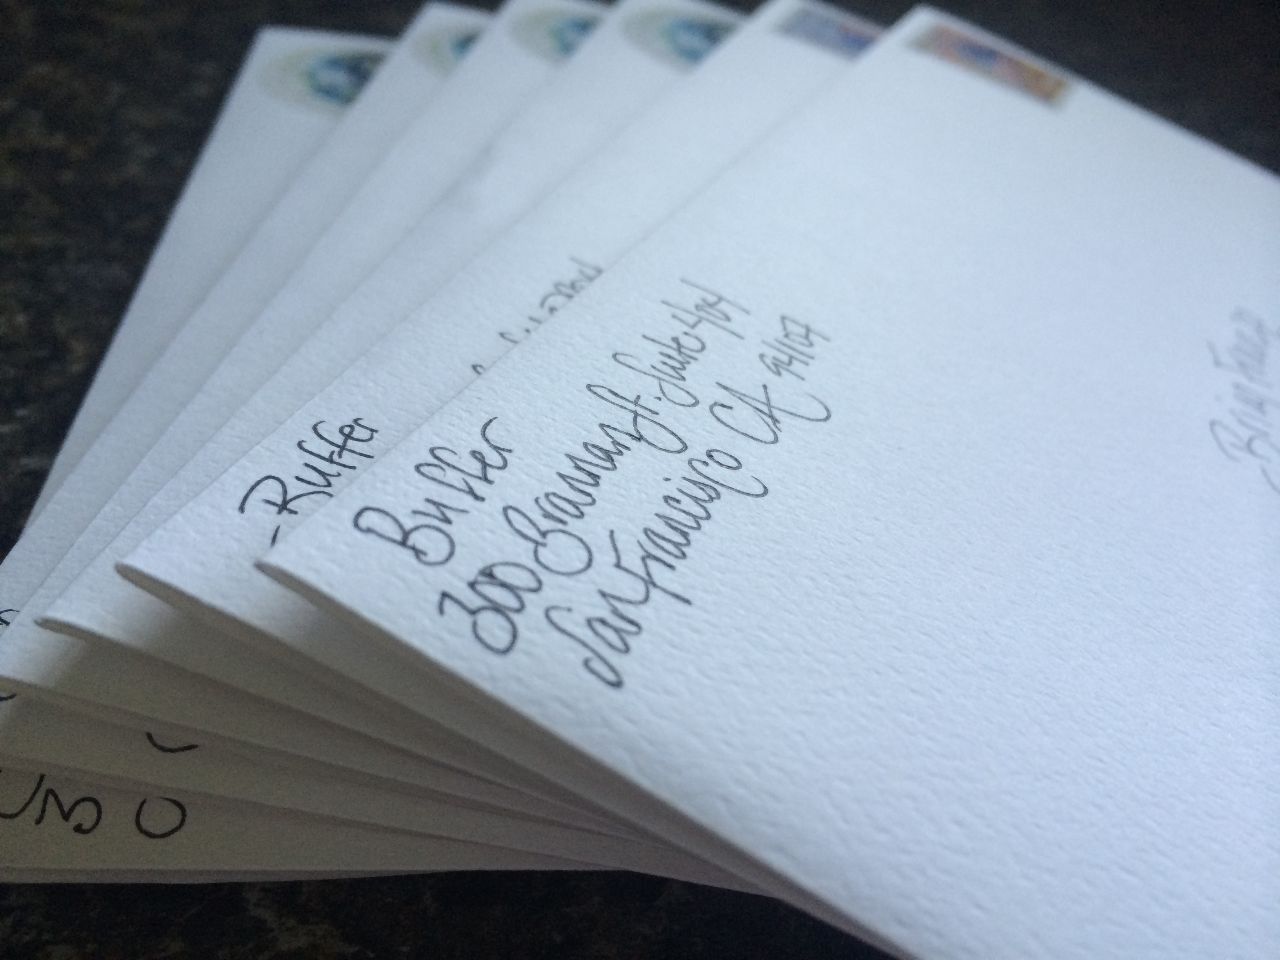 Buffer
300 Brannan St. Suite 404
San Francisco CA 94107
Buffer